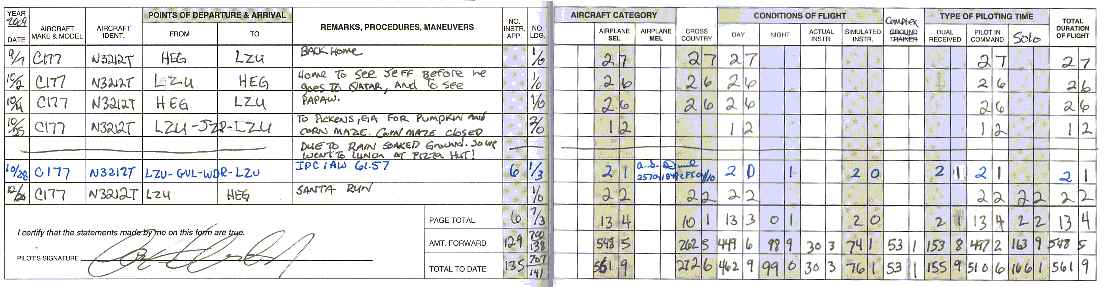 YEAR 2009 AIRCRAFT MAKE & MODEL AIRCRAFT IDENT. POINTS OF DEPARTURE & ARRIVAL REMARKS, PROCEDURES, MANEUVERS NO. INSTR. APP. NO. LDG. AIRCRAFT CATEGORY CROSS COUNTRY CONDITIONS OF FLIGHT Complex GROUND TRAINER TYPE OF PILOTING TIME TOTAL DURATION OF FLIGHT
DATE FROM TO AIRPLANE SEL AIRPLANE MEL DAY NIGHT ACTUAL INSTR. SIMULATED INSTR. DUAL RECEIVED PILOT IN COMMAND Solo
9/7 C177 N3212T HEG LZU BACK HOME 1/0 2 7 2 7 2 7 2 7 2 7
C177 N3212T LZU HEG HOME TO SEE JEFF BEFORE HE 1/0 2 6 2 6 2 6 2 6 2 6
GOES TO QATAR, AND TO SEE
C177 N3212T HEG LZU PAPAW. 1/0 2 6 2 6 2 6 2 6 2 6
10/25 C177 N3212T LZU-JZP-LZU TO PICKENS, GA FOR PUMPKIN AND 2/0 1 2 1 2 1 2 1 2
CORN MAZE. CORN MAZE CLOSED
DUE TO RAIN SOAKED GROUND. SO WE
WENT TO LUNCH AT PIZZA HUT!
10/28 C177 N3212T LZU-GVL-WDR-LZU IPC IAW 61.57 6 1/3 2 1 2 0 1 2 0 2 1 2 1 2 1
12/20 C177 N3212T LZU HEG SANTA RUN 1/0 2 2 2 2 2 2 2 2 2 2 2 2
PAGE TOTAL 6 7/3 13 4 10 1 13 3 0 1 2 0 2 1 13 4 2 2 13 4
I certify that the statements made by me on this form are true.
AMT. FORWARD 129 700/138 548 5 262 5 449 6 98 9 30 3 74 1 53 1 153 8 497 2 163 9 548 5
PILOT'S SIGNATURE
TOTAL TO DATE 135 707/141 561 9 272 6 462 9 99 0 30 3 76 1 53 1 155 9 510 6 166 1 561 9